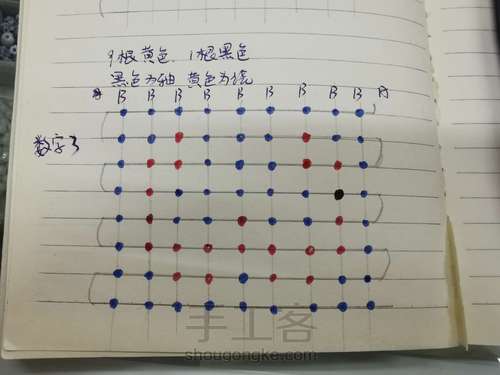 9根黄色、1根黑色
黑色为轴 黄色为绕
A B B B B B B B B B A
数字3
手工客
shougongke.com